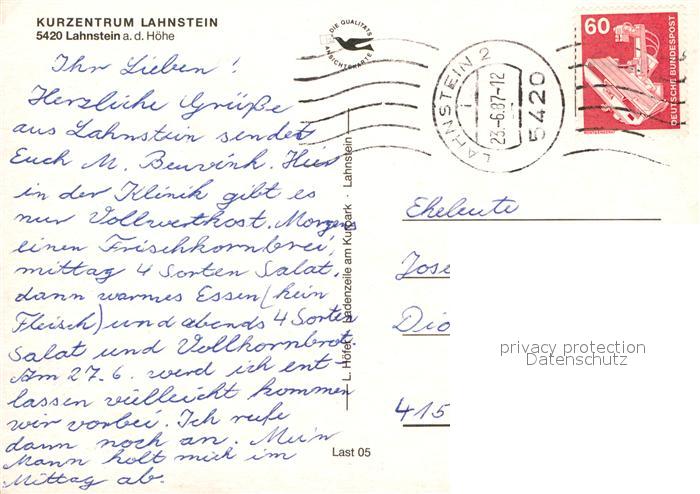 KURZENTRUM LAHNSTEIN
5420 Lahnstein a. d. Höhe
Ihr Lieben!
Herzliche Grüße
aus Lahnstein sendet
Euch M. Beuvink. Hier
in der Klinik gibt es
nur Vollwertkost. Morgens
einen Frischkornbrei,
mittag 4 Sorten Salat,
dann warmes Essen (kein
Fleisch) und abends 4 Sorten
Salat und Vollkornbrot.
Am 27.6. werd ich ent-
lassen vielleicht kommen
wir vorbei. Ich rufe
dann noch an. Mein
Mann holt mich im
Mittag ab.
DIE QUALITÄTS
ANSICHTSKARTE
L. Höfer, Ladenzeile am Kurpark · Lahnstein
Last 05
LAHNSTEIN 2
23.-6.87-12
5420
60
DEUTSCHE BUNDESPOST
Eheleute
Jose
Dio
415
privacy protection
Datenschutz